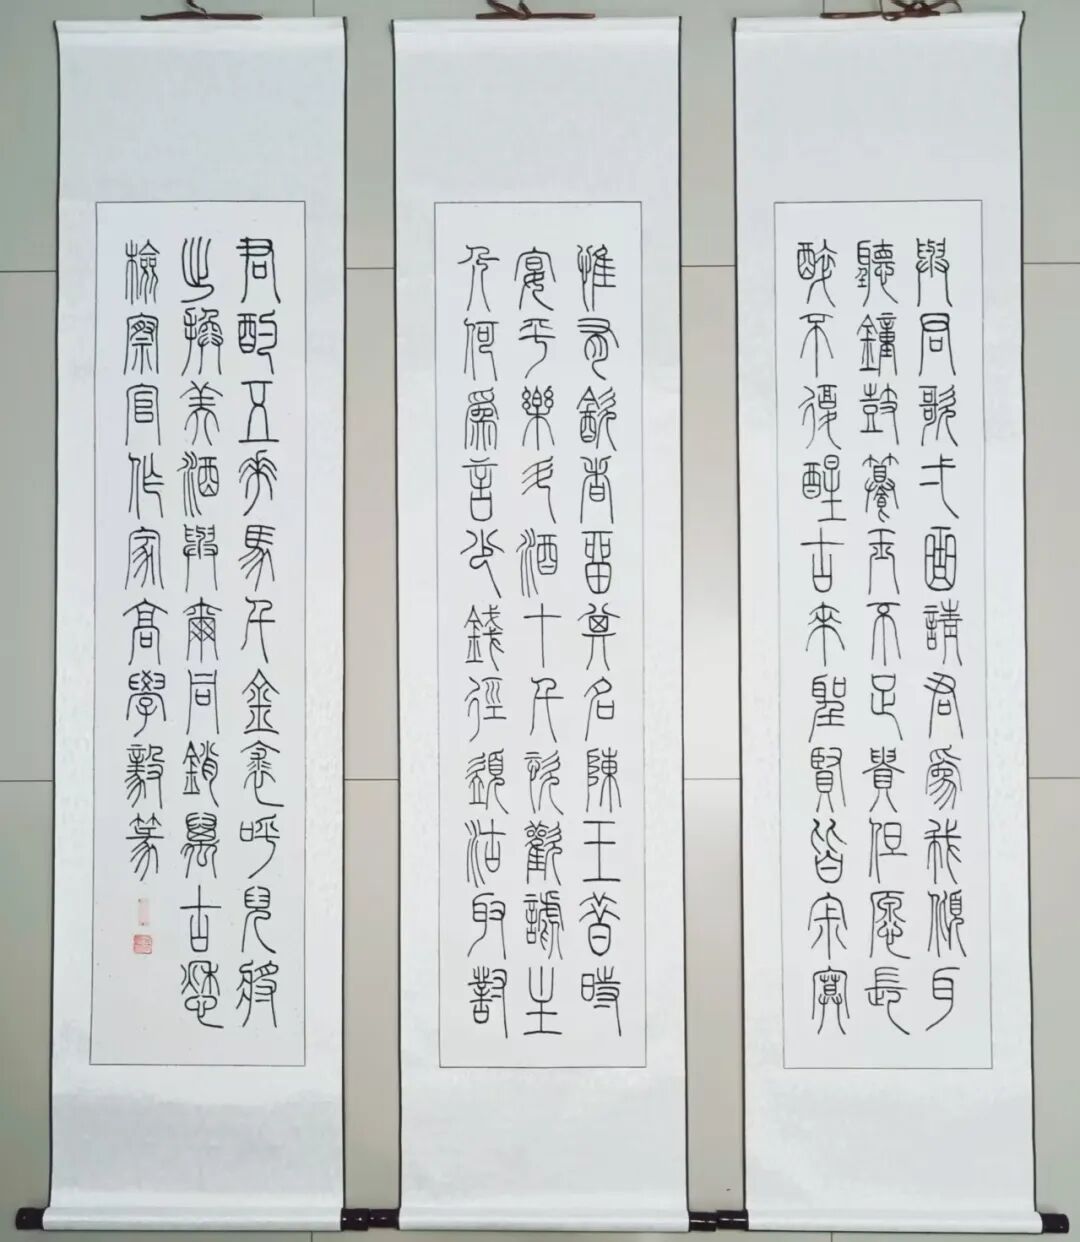 與君歌弌曲請君爲我傾耳
聽鐘鼓饌玉不足貴但愿長
醉不復醒古來聖賢皆寂寞
惟有飲者留其名陳王昔時
宴平樂斗酒十千恣歡謔主
人何爲言少錢徑須沽取對
君酌五花馬千金裘呼兒將
出換美酒與爾同銷萬古愁
檢察官作家高學毅篆